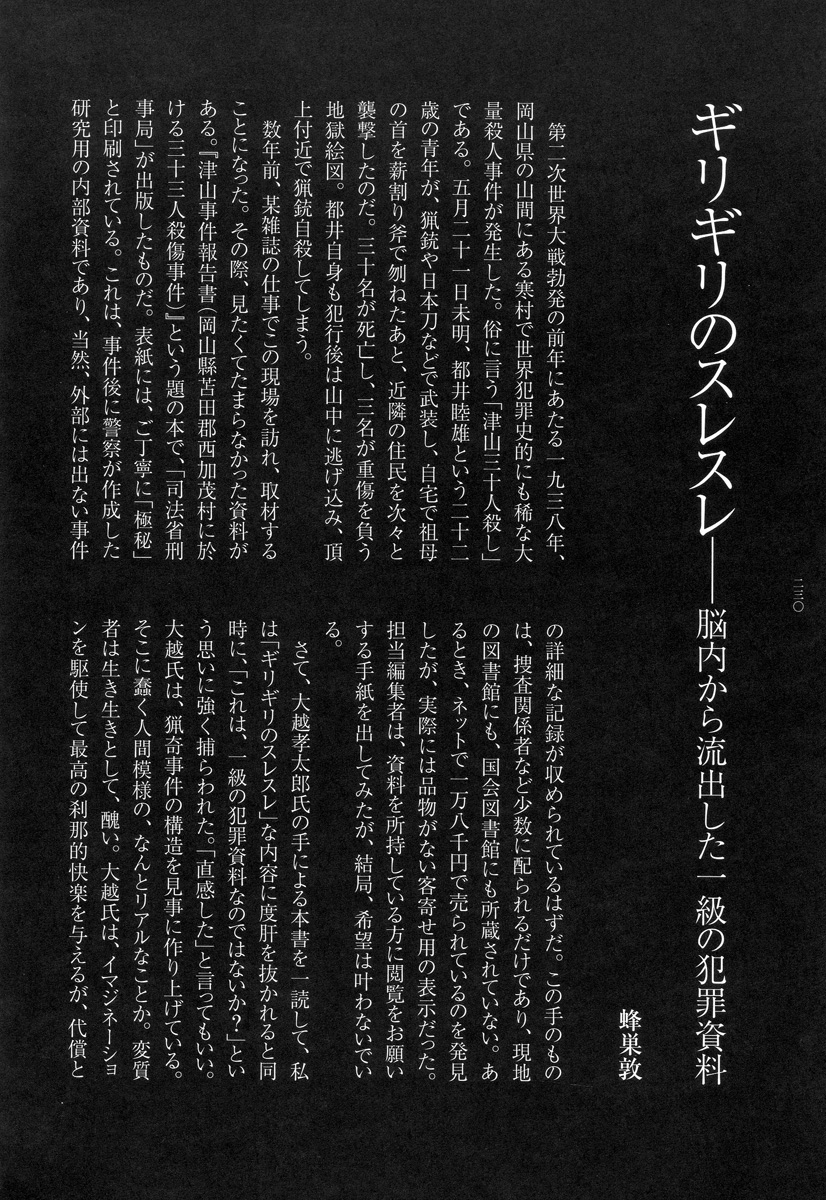 ギリギリのスレスレ――脳内から流出した一級の犯罪資料
蜂巣敦
第二次世界大戦勃発の前年にあたる一九三八年、
岡山県の山間にある寒村で世界犯罪史的にも稀な大
量殺人事件が発生した。俗に言う「津山三十人殺し」
である。五月二十一日未明、都井睦雄という二十二
歳の青年が、猟銃や日本刀などで武装し、自宅で祖母
の首を薪割り斧で刎ねたあと、近隣の住民を次々と
襲撃したのだ。三十名が死亡し、三名が重傷を負う
地獄絵図。都井自身も犯行後は山中に逃げ込み、頂
上付近で猟銃自殺してしまう。
数年前、某雑誌の仕事でこの現場を訪れ、取材する
ことになった。その際、見たくてたまらなかった資料が
ある。『津山事件報告書（岡山縣苫田郡西加茂村に於
ける三十三人殺傷事件）』という題の本で、「司法省刑
事局」が出版したものだ。表紙には、ご丁寧に「極秘」
と印刷されている。これは、事件後に警察が作成した
研究用の内部資料であり、当然、外部には出ない事件
の詳細な記録が収められているはずだ。この手のもの
は、捜査関係者など少数に配られるだけであり、現地
の図書館にも、国会図書館にも所蔵されていない。あ
るとき、ネットで一万八千円で売られているのを発見
したが、実際には品物がない客寄せ用の表示だった。
担当編集者は、資料を所持している方に閲覧をお願い
する手紙を出してみたが、結局、希望は叶わないでい
る。
さて、大越孝太郎氏の手による本書を一読して、私
は「ギリギリのスレスレ」な内容に度肝を抜かれると同
時に、「これは、一級の犯罪資料なのではないか？」とい
う思いに強く捕らわれた。「直感した」と言ってもいい。
大越氏は、猟奇事件の構造を見事に作り上げている。
そこに蠢く人間模様の、なんとリアルなことか。変質
者は生き生きとして、醜い。大越氏は、イマジネーショ
ンを駆使して最高の刹那的快楽を与えるが、代償と
二三〇